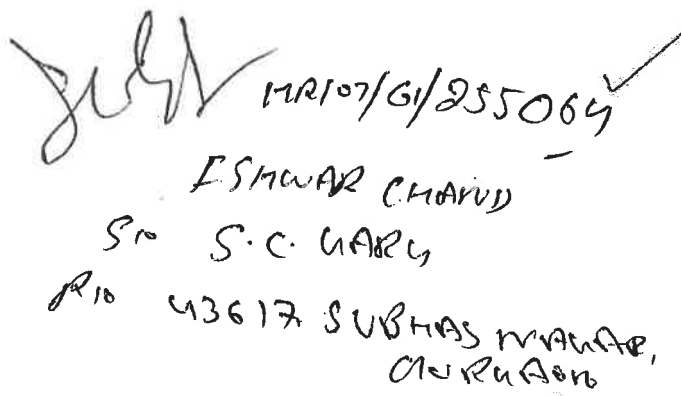 HR/07/61/255064
ESHWAR CHAND
S/o S.C. GARG
R/o 436/7 SUBHAS NAGAR,
GURGAON